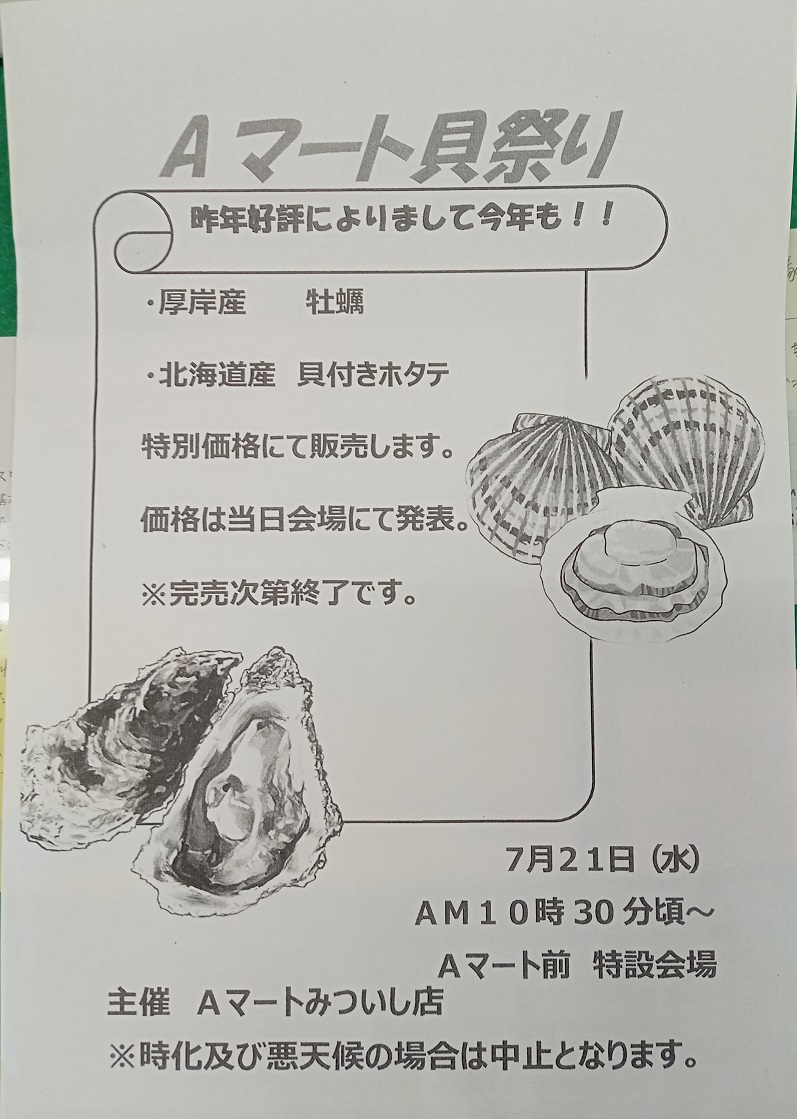 Aマート貝祭り
昨年好評によりまして今年も！！
・厚岸産　　牡蠣
・北海道産　貝付きホタテ
特別価格にて販売します。
価格は当日会場にて発表。
※完売次第終了です。
７月２１日（水）
ＡＭ１０時30分頃～
Ａマート前　特設会場
主催　Ａマートみついし店
※時化及び悪天候の場合は中止となります。